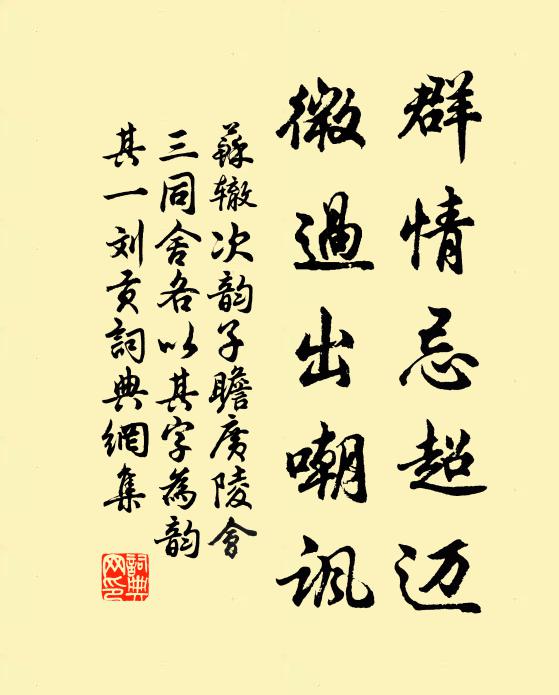 群情忌超迈
微過出嘲讽
蘇辙次韵子瞻廣陵會
三同舍各以其字為韵
其一刘贡詞典網集
詞典网印